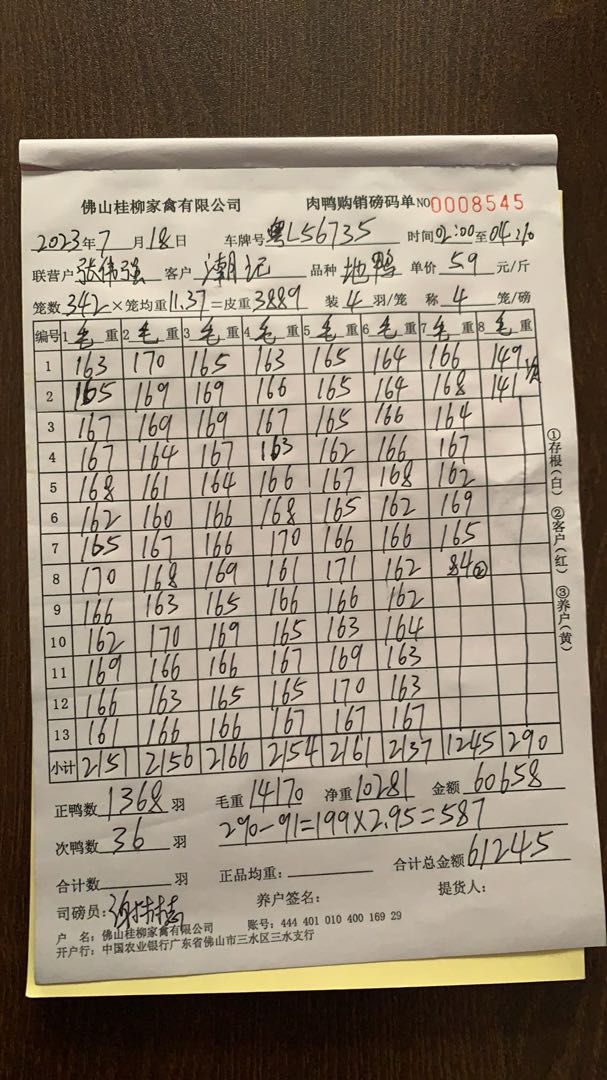 佛山桂柳家禽有限公司 肉鸭购销磅码单 NO0008545
2023年7月18日 车牌号粤L56735 时间02:00至04:20
联营户张伟强 客户潮记 品种地鸭 单价5.9元/斤
笼数342×笼均重11.37=皮重3889 装4羽/笼 称4笼/磅
编号 1毛重 2毛重 3毛重 4毛重 5毛重 6毛重 7毛重 8毛重
1 163 170 165 163 165 164 166 149
2 165 169 169 166 165 164 168 141
3 167 169 169 167 165 166 164
4 167 164 167 163 162 166 167
5 168 161 164 166 167 168 162
6 162 160 166 168 165 162 169
7 165 167 166 170 166 166 165
8 170 168 169 161 171 162 84②
9 166 163 165 166 166 162
10 162 170 169 165 163 164
11 169 166 166 167 169 163
12 166 163 165 165 170 163
13 161 166 166 167 167 167
小计 2151 2156 2166 2154 2161 2137 1245 290
①存根(白) ②客户(红) ③养户(黄)
正鸭数1368羽 毛重14170 净重10281 金额60658
次鸭数36羽 290-91=199×2.95=587
合计数 羽 正品均重: 合计总金额61245
司磅员: 养户签名: 提货人:
户 名: 佛山桂柳家禽有限公司 账号: 444 401 010 400 169 29
开户行: 中国农业银行广东省佛山市三水区三水支行